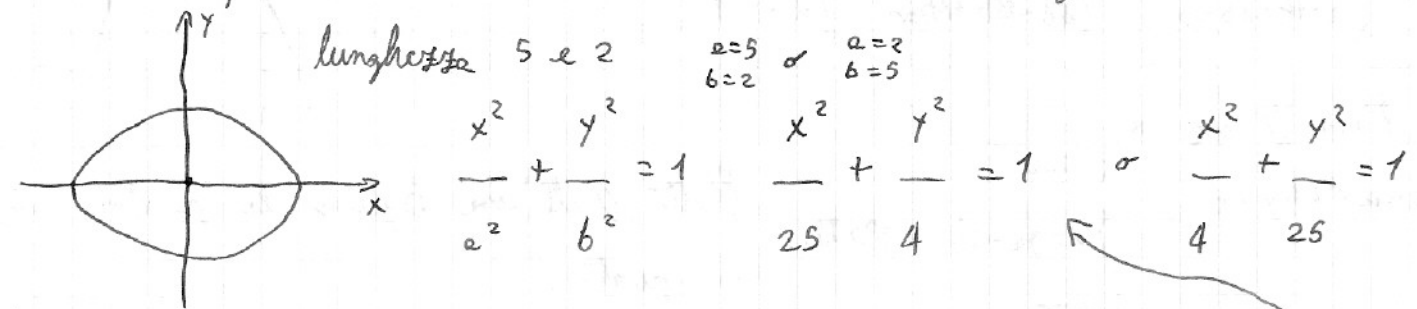 y
lunghezza 5 e 2 a=5 b=2 o a=2 b=5
x²/a² + y²/b² = 1 x²/25 + y²/4 = 1 o x²/4 + y²/25 = 1
x